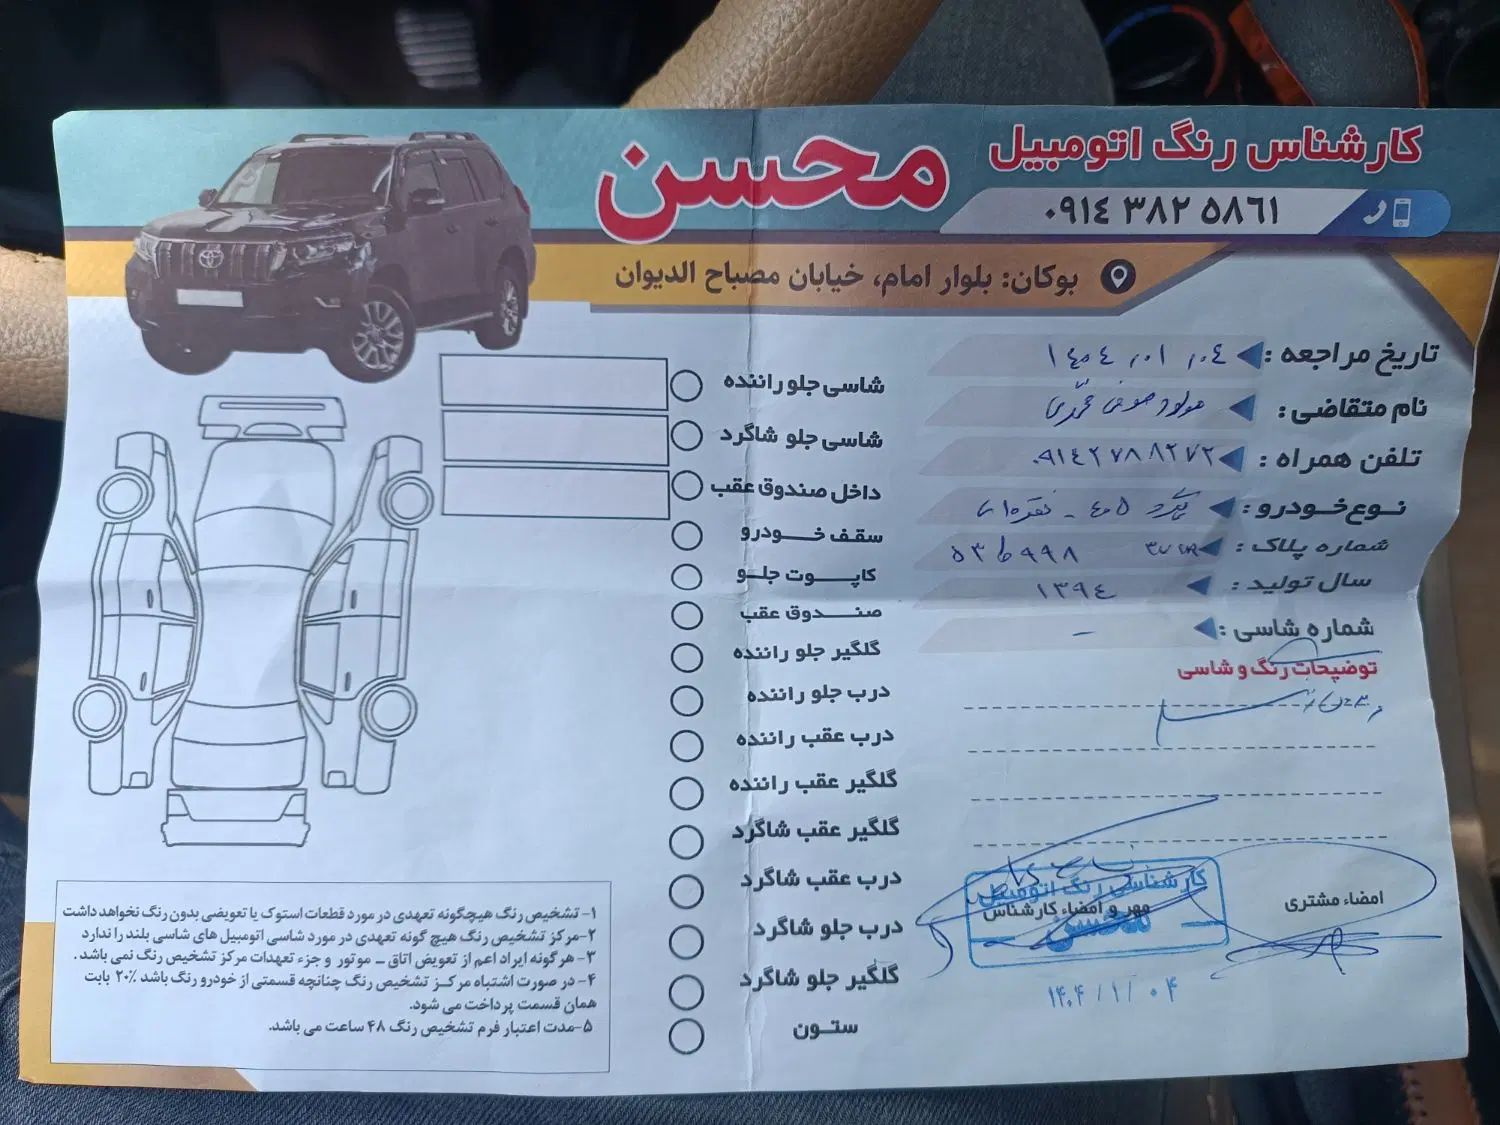 کارشناس رنگ اتومبیل
محسن
۰۹۱٤ ۳۸۲ ۵۸۶۱
بوکان: بلوار امام، خیابان مصباح الدیوان
تاریخ مراجعه : ۱٤۰٤،۰۱،۰٤
نام متقاضی : مولود صوفی محمدی
تلفن همراه : ۰۹۱٤۲۷۸۸۲۷۲
نوع خودرو : پژو ٤۰۵ - نقره‌ای
شماره پلاک : ۵۳ط۹۹۸
سال تولید : ۱۳۹٤
شماره شاسی : -
توضیحات رنگ و شاسی
امضاء مشتری
مهر و امضاء کارشناس
کارشناسی رنگ اتومبیل
محسن
۱۴۰۴/۱/۰۴
شاسی جلو راننده
شاسی جلو شاگرد
داخل صندوق عقب
سقف خودرو
کاپوت جلو
صندوق عقب
گلگیر جلو راننده
درب جلو راننده
درب عقب راننده
گلگیر عقب راننده
گلگیر عقب شاگرد
درب عقب شاگرد
درب جلو شاگرد
گلگیر جلو شاگرد
ستون
۱- تشخیص رنگ هیچگونه تعهدی در مورد قطعات استوک یا تعویضی بدون رنگ نخواهد داشت
۲-مرکز تشخیص رنگ هیچ گونه تعهدی در مورد شاسی اتومبیل های شاسی بلند را ندارد
۳- هرگونه ایراد اعم از تعویض اتاق - موتور و جزء تعهدات مرکز تشخیص رنگ نمی باشد .
۴- در صورت اشتباه مرکز تشخیص رنگ چنانچه قسمتی از خودرو رنگ باشد ۲۰٪ بابت
همان قسمت پرداخت می شود.
۵-مدت اعتبار فرم تشخیص رنگ ۴۸ ساعت می باشد.